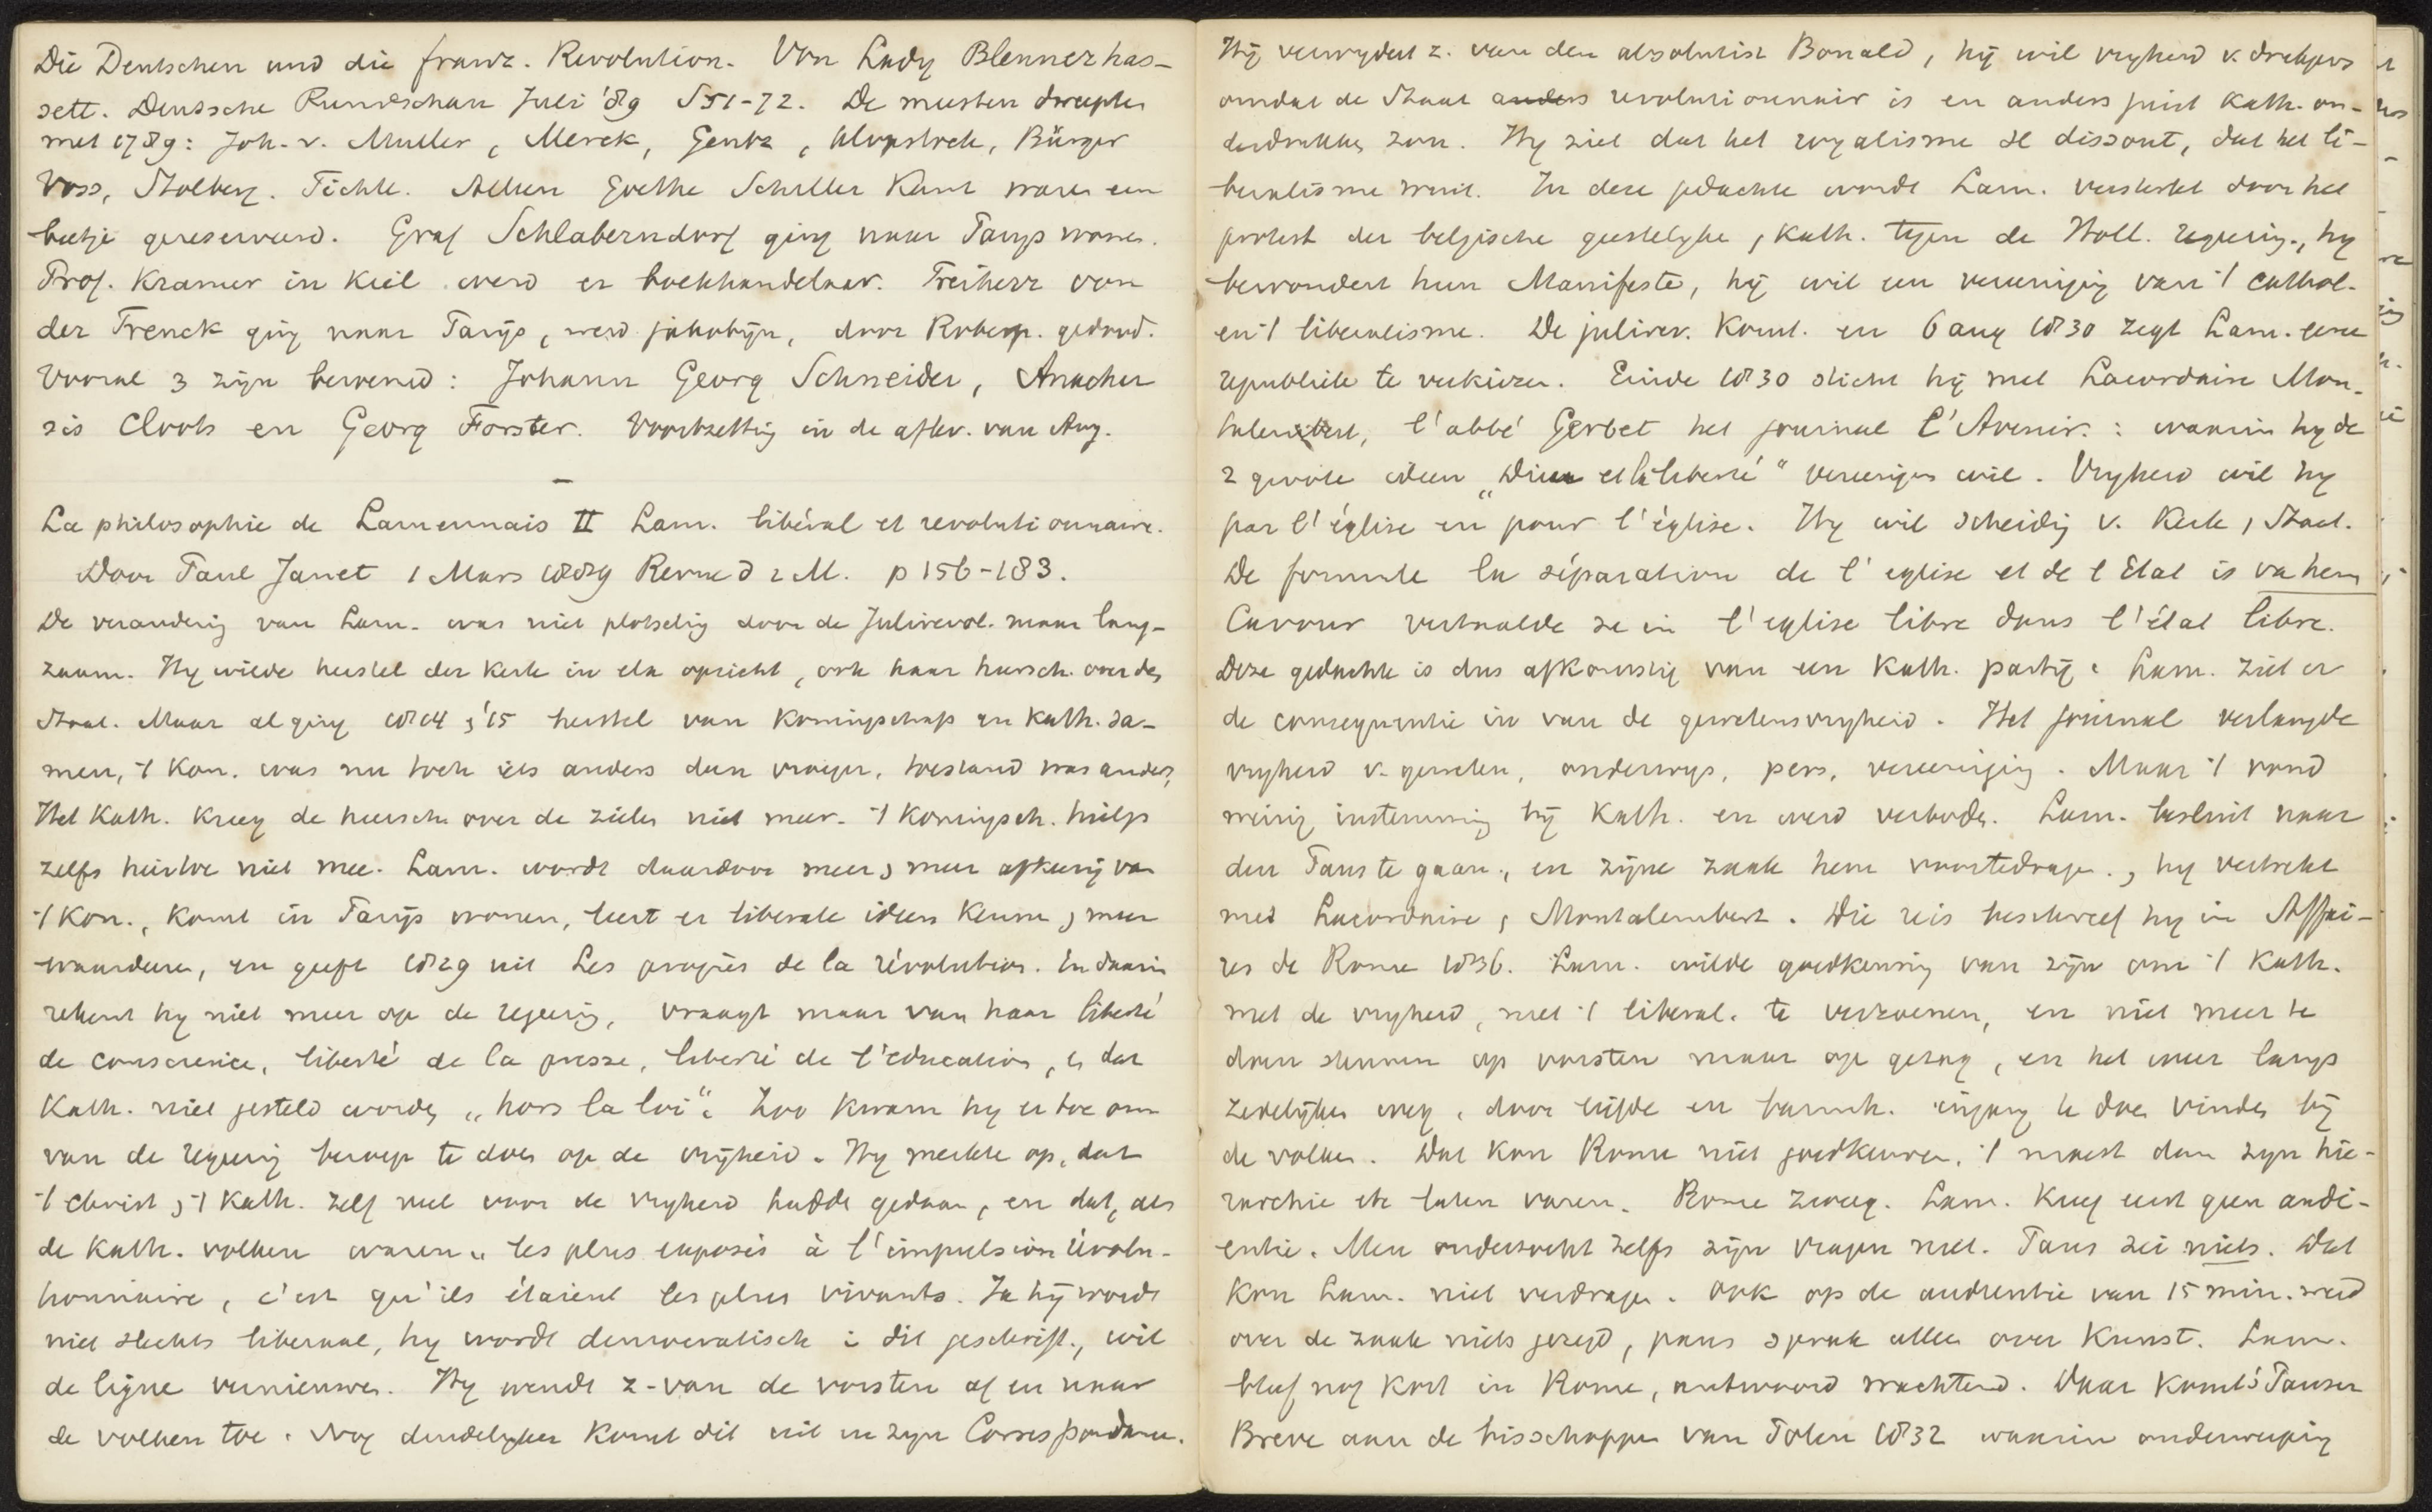 Die Deutschen und die franz. Revolution. Von Lady Blennerhas-
sett. Deutsche Rundschau Juli '89 S 51-72. De meesten dweepten
met 1789: Joh. v. Muller, Merck, Gentz, Klopstock, Bürger
Voss, Stolberg. Fichte. Alleen Goethe Schiller Kant waren een
beetje gereserveerd. Graf Schlaberndorf ging naar Parys wonen.
Prof. Kramer in Kiel werd er boekhandelaar. Freiherr von
der Trenck ging naar Parys, werd jakobijn, door Robesp. gedood.
Vooral 3 zijn beroemd: Johann Georg Schneider, Anachar
sis Cloots en Georg Forster. Voortzetting in de aflev. van Aug.
La philosophie de Lamennais II Lam. libéral et revolutionnaire.
Door Paul Janet 1 Mars 1889 Revue d 2 M. p 156-183.
De verandering van Lam. was niet plotseling door de Julirevol. maar lang-
zaam. Hy wilde herstel der Kerk in elk opzicht, ook haar heersch. over den
Staat. Maar al ging 1814 , '15 herstel van Koningschap en Kath. sa-
men, 't Kon. was nu toch iets anders dan vroeger, toestand was anders,
Het Kath. kreeg de heersch. over de zielen niet meer. 't Koningsch. hielp
zelfs hiertoe niet mee. Lam. wordt daardoor meer , meer afkeerig van
't Kon., komt in Parijs wonen, leert er liberale ideen kennen , meer
waarderen, en geeft 1829 uit Les progrès de la révolution. En daarin
rekent hy niet meer op de regeering, vraagt maar van haar liberté
de conscience, liberté de la presse, liberté de l'éducation, , dat
Kath. niet gesteld worden „hors la loi". Zoo kwam hy er toe om
van de regeering beroep te doen op de vrijheid. Hy merkte op, dat
't Christ , 't Kath. zelf veel voor de vryheid hadde gedaan, en dat, als
de Kath. volken waren „les plus exposés à l'impulsion révolu-
tionnaire, c'est qu'ils étaient les plus vivants. Ja hij wordt
niet slechts liberaal, hy wordt democratisch i dit geschrift, wil
de ligne vernieuwen. Hy wendt z. van de vorsten af en naar
de volken toe. Nog duidelyker komt dit uit in zyn Correspondance.
Hij verwydert z. van den absolutist Bonald, hij wil vryheid v. drukpers
omdat de Staat anders revolutionnair is en anders juist Kath. on-
derdrukken zou. Hy ziet dat het royalisme se dissout, dat het li-
beralisme wint. In deze gedachte wordt Lam. versterkt door het
protest der belgische geestelyke , kath. tegen de Holl. regeering, hy
bewondert hun Manifeste, hij wil een vereeniging van 't Cathol.
en 't liberalisme. De julirev. komt. en 6 aug 1830 zegt Lam. eene
republiek te verkiezen. Einde 1830 sticht hij met Lacordaire Mon-
talembert, l'abbé Gerbet het journal L'Avenir. : waarin hy de
2 groote ideen „Dieu et la liberté" vereenigen wil. Vryheid wil hy
par l'église en pour l'église. Hy wil scheiding v. Kerk , Staat.
De formule la séparation de l'eglise et de l Etat is va hem
Cavour vertaalde ze in l'eglise libre dans l'état libre.
Deze gedachte is dus afkomstig van een Kath. partij. Lam. ziet er
de consequentie in van de gewetensvryheid. Het journal verlangde
vryheid v. geweten, onderwys, pers, vereeniging. Maar 't vond
weinig instemming bij Kath. en werd verboden. Lam. besluit naar
den Paus te gaan, en zijne zaak hem voortedragen., hy vertrekt
met Lacordaire , Montalembert. Die reis beschreef hy in Affai-
res de Rome 1836. Lam. wilde goedkeuring van zijn om 't Kath.
met de vryheid, met 't liberal. te verzoenen, en niet meer te
doen steunen op vorsten maar op gezag, en het weer langs
zedelijken weg, door liefde en barmh. ingang te doen vinden bij
de volken. Dat kon Rome niet goedkeuren, 't moest dan zyn hie-
rarchie etc laten varen. Rome zweeg. Lam. kreeg eerst geen audi-
entie. Men onderzocht zelfs zijn vragen niet. Paus zei niets. Dat
kon Lam. niet verdragen. Ook op de audientie van 15 min. werd
over de zaak niets gezegd, paus sprak alleen over Kunst. Lam.
bleef nog kort in Rome, antwoord wachtend. Daar komt 's Pausen
Breve aan de bisschoppen van Polen 1832 waarin onderwerping